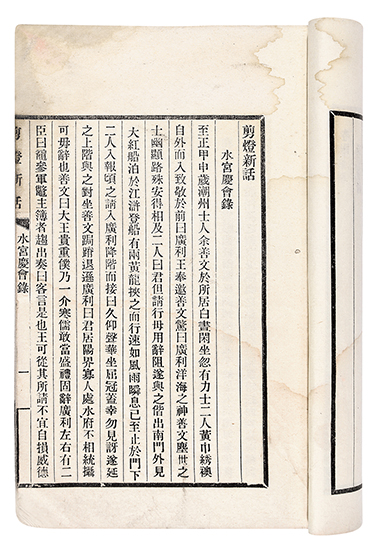 剪燈新話
水宮慶會錄
至正甲申歲潮州士人余善文於所居白晝閑坐忽有力士二人黃巾綉襖
自外而入致敬於前曰廣利王奉邀善文驚曰廣利洋海之神善文塵世之
士幽顯路殊安得相及二人曰君但請行毋用辭阻遂與之偕出南門外見
大紅船泊於江滸登船有兩黃龍挾之而行速如風雨瞬息已至止於門下
二人入報頃之請入廣利降階而接曰久仰聲華坐屈冠蓋幸勿見訝遂延
之上階與之對坐善文跼蹐退遜廣利曰君居陽界寡人處水府不相統攝
可毋辭也善文曰大王貴重僕乃一介寒儒敢當盛禮固辭廣利左右有二
臣曰黿參軍鼈主簿者趨出奏曰客言是也王可從其所請不宜自損威德
剪燈新話 水宮慶會錄 一